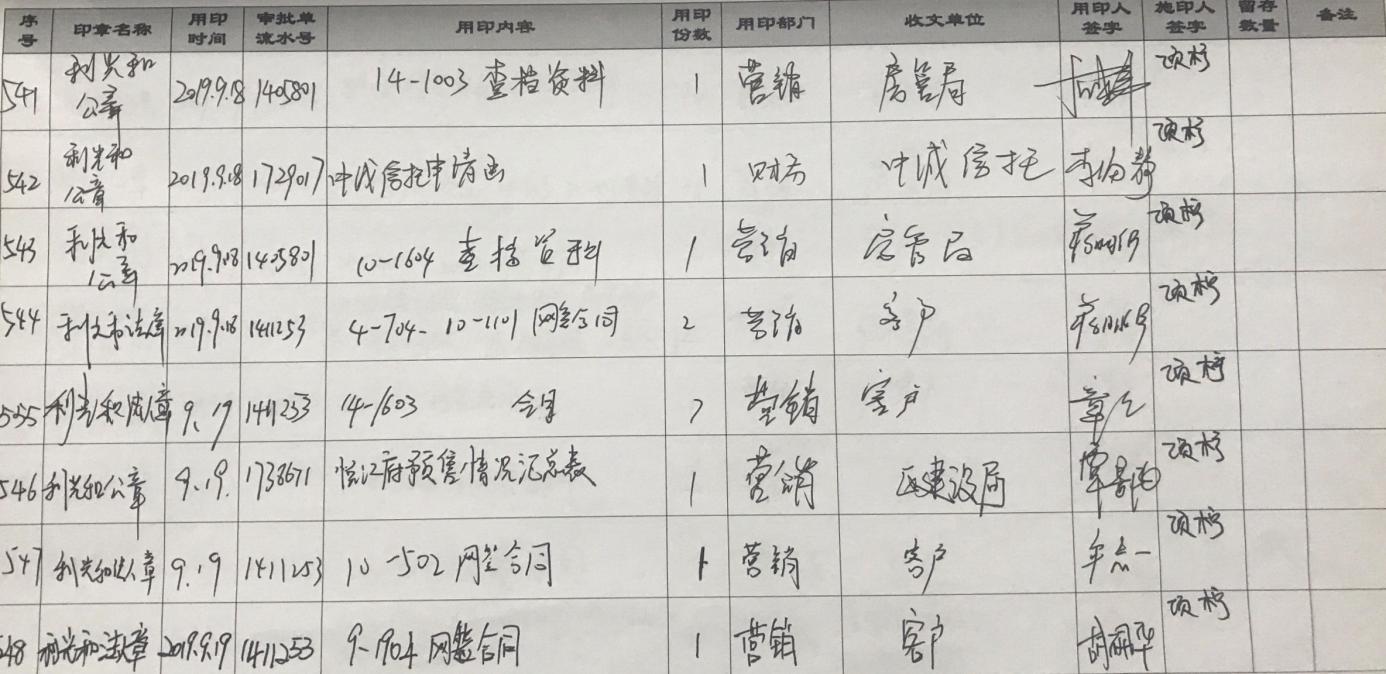 序号 印章名称 用印时间 审批单流水号 用印内容 用印份数 用印部门 收文单位 用印人签字 施印人签字 留存数量 备注
541 利光和公章 2019.9.18 1405801 14-1003 查档资料 1 营销 房管局 项柠
542 利光和公章 2019.9.18 1729017 中诚信托申请函 1 财务 中诚信托 李伯静 项柠
543 利光和公章 2019.9.18 1405801 10-1604 查档资料 1 营销 房管局 项柠
544 利光和法章 2019.9.18 1411253 4-704- 10-1101 网签合同 2 营销 客户 项柠
利光和法人章 9.19 1411253 14-1603 合同 营销 客户 项柠
546 利光和公章 9.19. 1738671 悦江府预售情况汇总表 1 营销 区建设局 项柠
547 利光和法人章 9.19 1411253 10-502 网签合同 1 营销 客户 项柠
548 利光和法章 2019.9.19 1411253 9-1904 网签合同 1 营销 客户 项柠